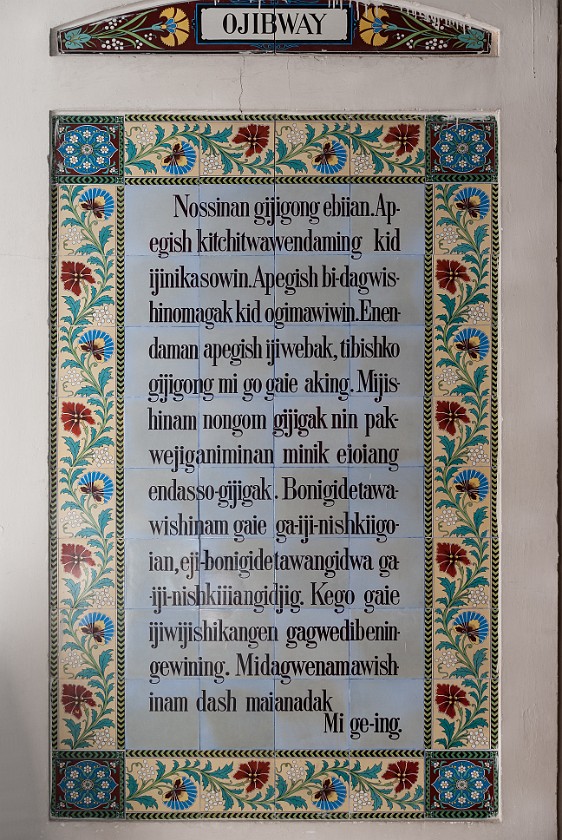 OJIBWAY
Nossinan gijigong ebiian. Ap-
egish kitchitwawendaming kid
ijinikasowin. Apegish bi-dagwis-
hinomagak kid ogimawiwin. Enen-
daman apegish ijiwebak, tibishko
gijigong mi go gaie aking. Mijis-
hinam nongom gijigak nin pak-
wejiganiminan minik eioiang
endasso-gijigak. Bonigidetawa-
wishinam gaie ga-iji-nishkiigo-
ian, eji-bonigidetawangidwa ga-
-iji-nishkiiiangidjig. Kego gaie
ijiwijishikangen gagwedibenin-
gewining. Midagwenamawish-
inam dash maianadak
Mi ge-ing.